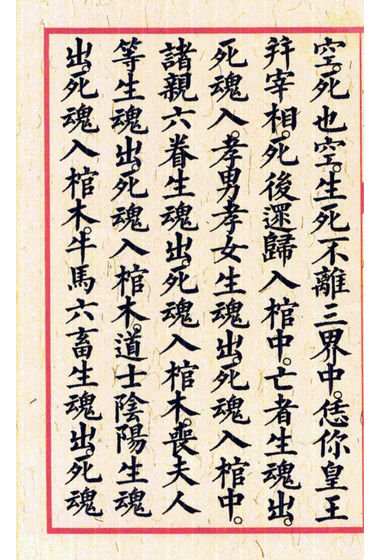 空。死也空。生死不離三界中。恁你皇王
并宰相。死後還歸入棺中。亡者生魂出。
死魂入。孝男孝女生魂出。死魂入棺中。
諸親六眷生魂出。死魂入棺木。喪夫人
等生魂出。死魂入棺木。道士陰陽生魂
出。死魂入棺木。牛馬六畜生魂出。死魂